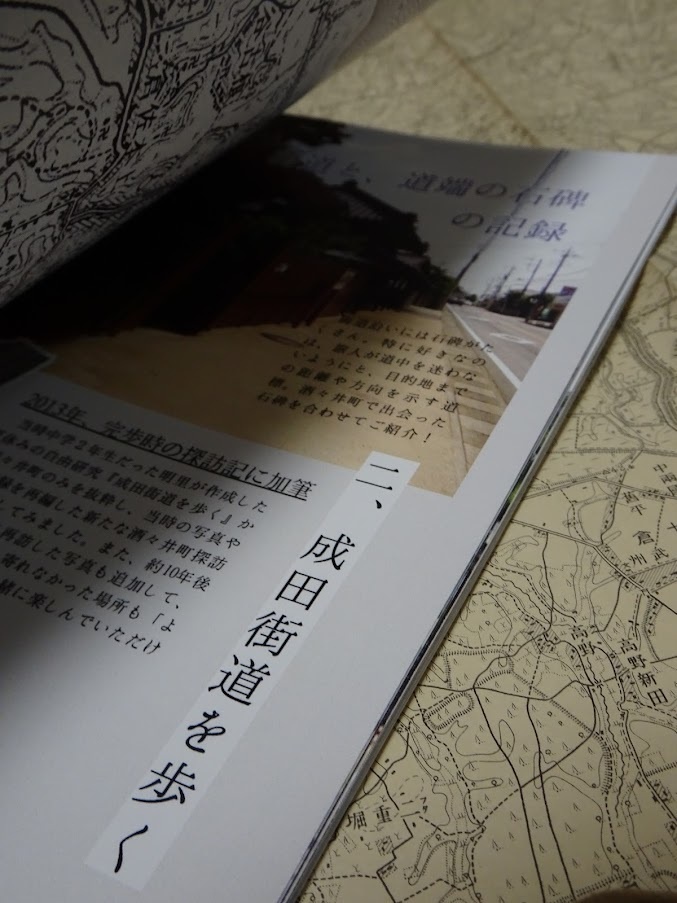 道と、道端の石碑
の記録
街道沿いには石碑がた
くさん。特に好きなの
は、旅人が道中を迷わな
いようにと、目的地まで
の距離や方向を示す道
標。酒々井町で出会った
石碑を合わせてご紹介!
二、成田街道を歩く
2013年、完歩時の探訪記に加筆
当時中学2年生だった明里が作成した
休みの自由研究『成田街道を歩く』か
々井町のみを抜粋し、当時の写真や
録を再編した新たな酒々井町探訪
てみました。また、約10年後
再訪した写真も追加して、
寄れなかった場所も「よ
緒に楽しんでいただけ
高野
高野新田
倉
武
州
重
堀